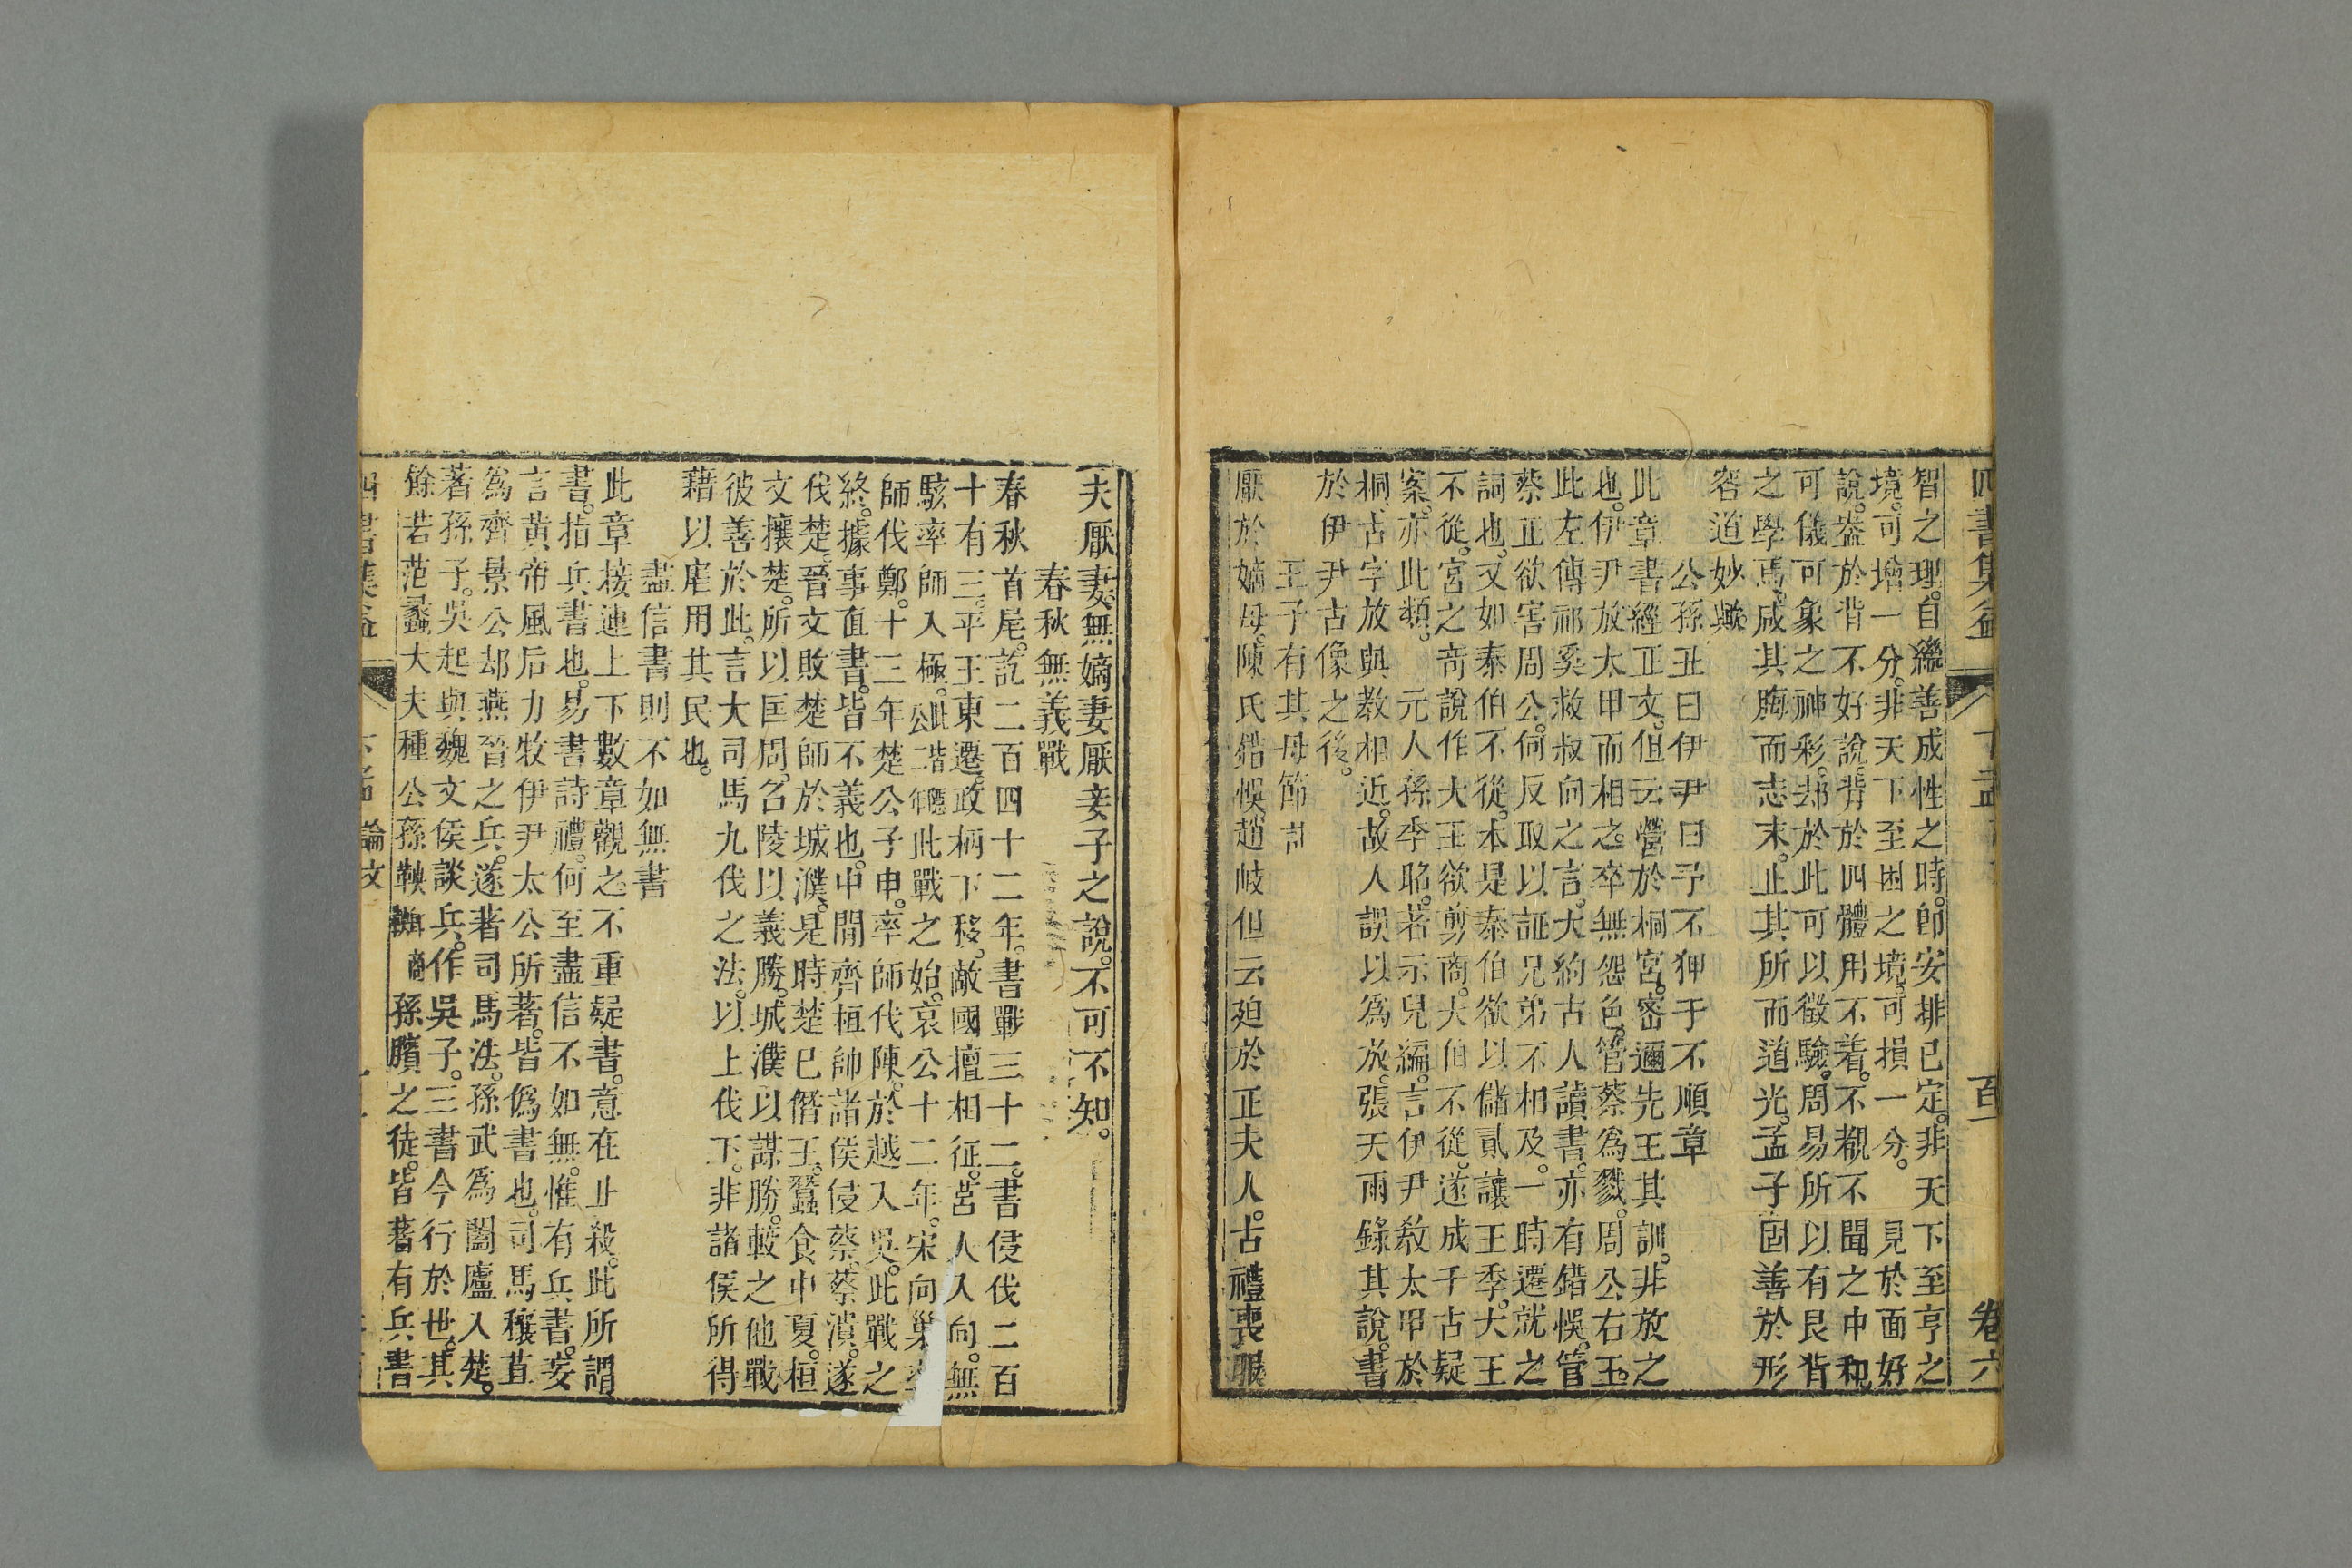 四書集益 下孟 百一 卷六
智之理。自繼善成性之時。卽安排已定。非天下至亨之
境。可增一分。非天下至困之境。可損一分。見於面好
說。盎於背不好說。背於四體用不着。不覩不聞之中和
可儀可象之神彩。却於此可以徵驗。周易所以有艮背
之學焉。咸其脢而志末。止其所而道光。孟子固善於形
容道妙歟。
公孫丑曰伊尹曰予不狎于不順章
此章書經正文。但云營於桐宮。密邇先王其訓。非放之
也。伊尹放太甲而相之。卒無怨色。管蔡爲戮。周公右王。
此左傳祁奚救叔向之言。大約古人讀書。亦有錯悞。管
蔡正欲害周公。何反取以証兄弟不相及。一時遷就之
詞也。又如泰伯不從。本是泰伯欲以儲貳讓王季。大王
不從。宮之奇說作大王欲剪商。大伯不從。遂成千古疑
案。亦此類。元人孫季昭。著示兒編。言伊尹教太甲於
桐。古字放與教相近。故人誤以爲放。張天雨錄其說。書
於伊尹古像之後。
王子有其母節
厭於嫡母。陳氏錯悞。趙岐但云廹於正夫人。古禮喪服
夫厭妻。無嫡妻厭妾子之說。不可不知。
春秋無義戰
春秋首尾。訖二百四十二年。書戰三十二。書侵伐二百
十有三。平王東遷。政柄下移。敵國擅相征。莒人入向。無
駭率師入極。此戰之始。哀公十二年。宋向巢
師伐鄭。十三年楚公子申。率師伐陳。於越入吳。此戰之
終。據事直書。皆不義也。中間齊桓帥諸侯侵蔡。蔡潰。遂
伐楚。晉文敗楚師於城濮。是時楚已僭王。蠶食中夏。桓
文攘楚。所以匡周。召陵以義勝。城濮以謀勝。較之他戰
彼善於此。言大司馬九伐之法。以上伐下。非諸侯所得
藉以虐用其民也。
盡信書則不如無書
此章接連上下數章觀之。不重疑書。意在止殺。此所謂
書。指兵書也。易書詩禮。何至盡信不如無。惟有兵書。妄
言黃帝風后力牧伊尹太公所著。皆僞書也。司馬穰苴
爲齊景公却燕晉之兵。遂著司馬法。孫武爲闔廬入楚。
著孫子。吳起與魏文侯談兵。作吳子。三書今行於世。其
餘若范蠡大夫種公孫鞅 孫臏之徒。皆著有兵書
四書集益 論文